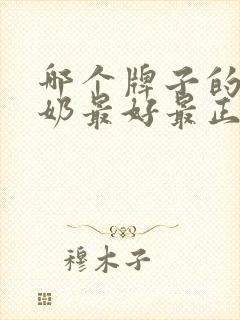 哪个牌子的
奶最好最正
穆木子